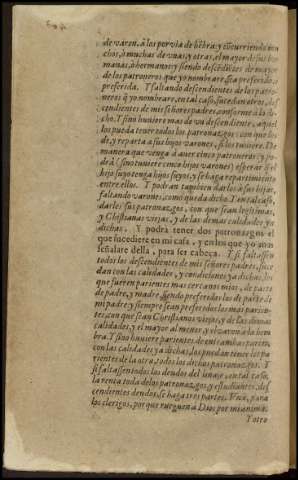 de varon, â los por via de hêbra: y côcurriendo mu
chos, ô muchas de vnas, y otras, el mayor de sus her
manas, ô hermanos: y siendo descêdiêtes de mayor
de los patroneros que yo nombrare sea preferido, o
preferida. Y faltando descendientes de los patro-
neros q̃ yo nombrare, en tal caso, sucedan otros, des-
cendientes de mis señores padres, conforme a lo di-
cho. Y sino huuiere mas de vn descendiente, aquel
los pueda tener todos los patronazgos: con que los
dê, y reparta a sus hijos varones, si los tuuiere. De
manera que venga â auer cinco patroneros: y po-
drâ (sino tuuiere cinco hijos varones) esperar q̃ el
hijo suyo tenga hijos suyos, y se haga repartimiento
entre ellos. Y podran tambien darlos â sus hijas,
faltando varones, como queda dicho. Y en tal caso,
darles sus patronazgos, con que sean legitimas,
y Christianas viejas, y de las demas calidades ya
dichas. Y podra tener dos patronazgos el
que sucediere en mi casa, y en los que yo aqui
señalare della, para ser cabeça. Y si faltassen
todos los descendientes de mis señores padres, suce
dan con las calidades, y condiciones ya dichas, los
que fueren parientes mas cercanos mios, de parte
de padre, y madre, siendo preferidos los de parte de
mi padre: y siempre sean preferidos los mas parien-
tes, con que sean Christianos viejos, y de las demas
calidades, y el mayor al menor, y el varon â la hem
bra. Y sino huuiere parientes de entrambas partes,
con las calidades ya dichas, los puedan tener los pa
rientes de la otra, todos los dichos patronazgos. Y
si faltassen todos los deudos del linaje, en tal caso,
la renta toda de los patronazgos, y estudiantes, des
cendientes de ndos, se haga tres partes. Vna, para
los clerigos, por que rueguen a Dios por mi anima.
Y otra